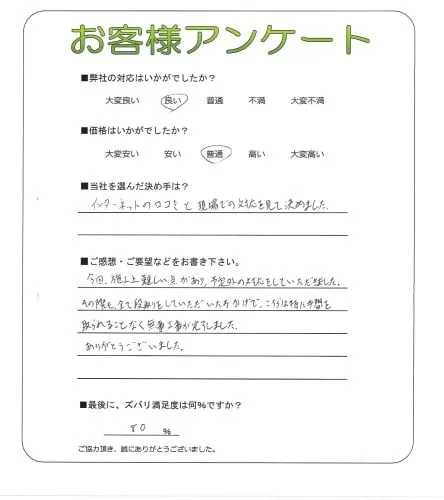 お客様アンケート
■弊社の対応はいかがでしたか?
大変良い 良い 普通 不満 大変不満
■価格はいかがでしたか?
大変安い 安い 普通 高い 大変高い
■当社を選んだ決め手は?
インターネットの口コミと現場での対応を見て決めました。
■ご感想・ご要望などをお書き下さい。
今回、施工上難しい点があり、予定外の対応をしていただきました。
その際も、全て段取りをしていただいたおかげで、こちらは特に手間を
取られることなく無事工事が完了しました。
ありがとうございました。
■最後に、ズバリ満足度は何%ですか?
80 %
ご協力頂き、誠にありがとうございました。